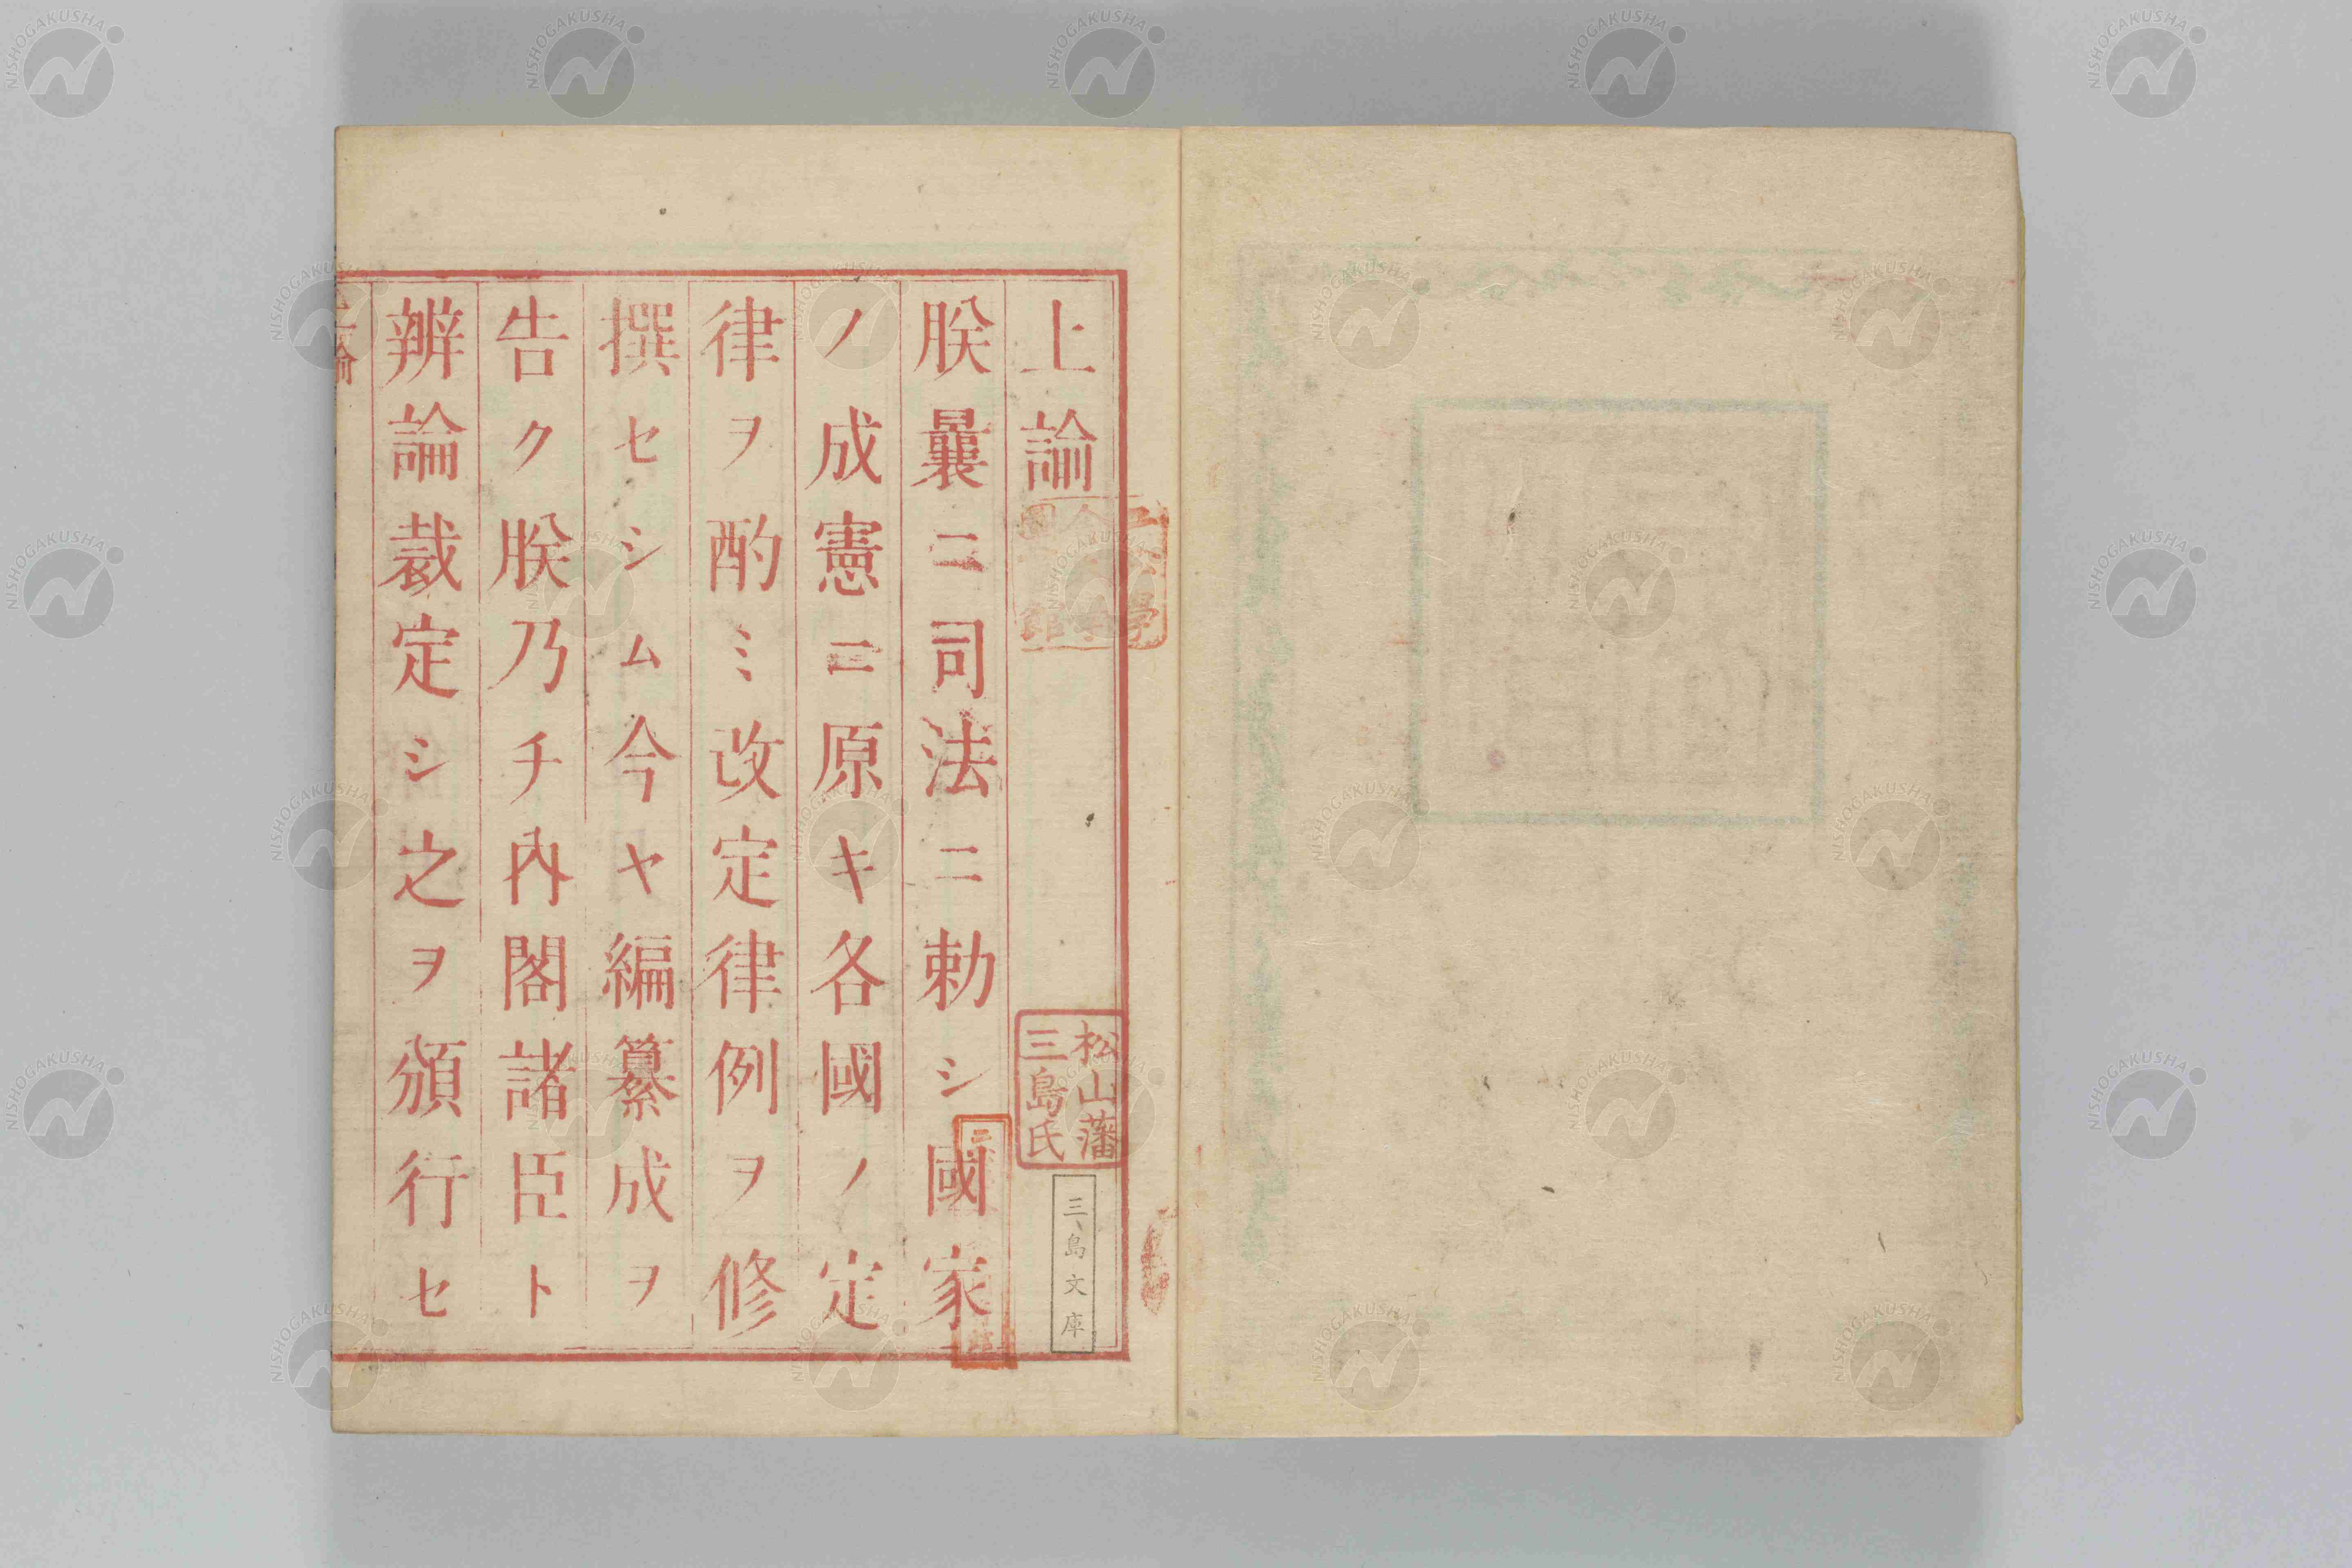 上諭
朕曩ニ司法ニ勅シ國家
ノ成憲ニ原キ各國ノ定
律ヲ酌ミ改定律例ヲ修
撰セシム今ヤ編纂成ヲ
告ク朕乃チ內閣諸臣ト
辨論裁定シ之ヲ頒行セ
上諭
松山藩
三島氏
三島文庫
NISHOGAKUSHA